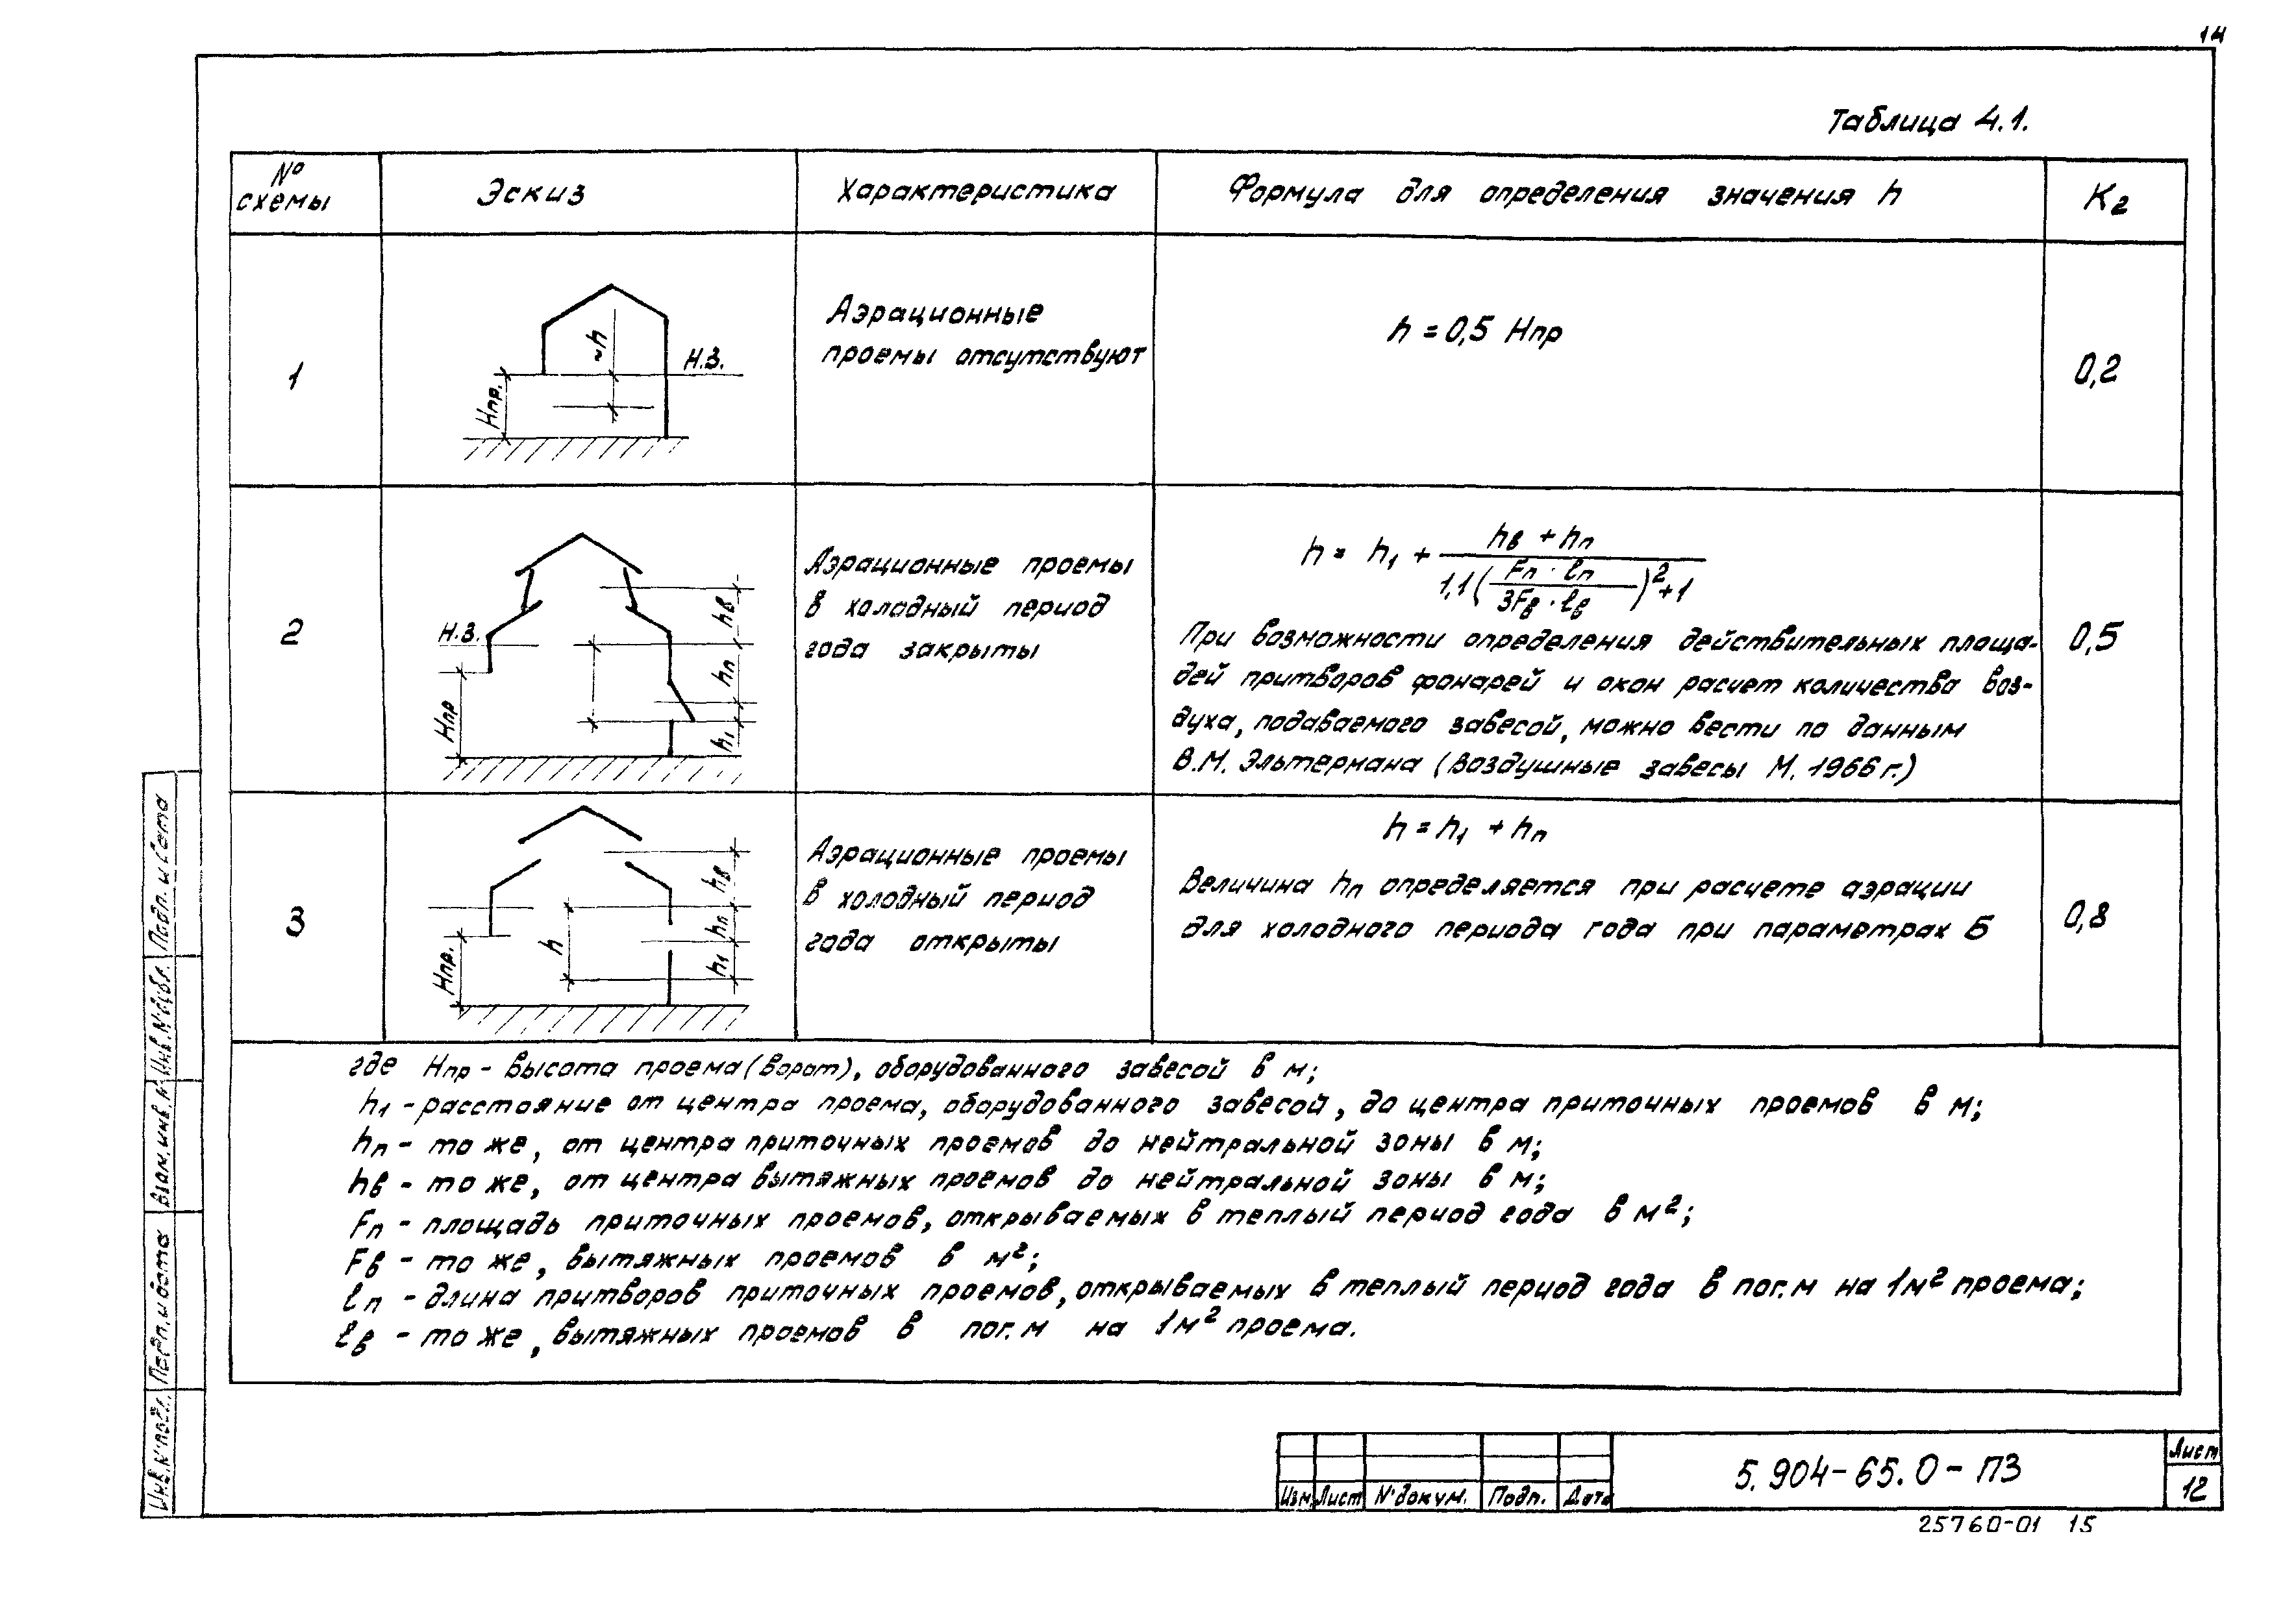 14
Таблица 4.1.
№ схемы
Эскиз
Характеристика
Формула для определения значения h
К₂
1
Нпр.
~h
Н.З.
Аэрационные
проемы отсутствуют
h = 0,5 Нпр
0,2
2
Н.З.
Нпр
hв
hп
h₁
Аэрационные проемы
в холодный период
года закрыты
h = h₁ + (hв + hп) / (1,1 (Fп · lп / 3Fв · lв)² + 1)
При возможности определения действительных площа-
дей притворов фонарей и окон расчет количества воз-
духа, подаваемого завесой, можно вести по данным
В.М. Эльтермана (Воздушные завесы М. 1966 г.)
0,5
3
Нпр.
h
hв
hп
h₁
Аэрационные проемы
в холодный период
года открыты
h = h₁ + hп
Величина hп определяется при расчете аэрации
для холодного периода года при параметрах Б
0,8
где Нпр - высота проема (ворот), оборудованного завесой в м;
h₁ - расстояние от центра проема, оборудованного завесой, до центра приточных проемов в м;
hп - то же, от центра приточных проемов до нейтральной зоны в м;
hв - то же, от центра вытяжных проемов до нейтральной зоны в м;
Fп - площадь приточных проемов, открываемых в теплый период года в м²;
Fв - то же, вытяжных проемов в м²;
lп - длина притворов приточных проемов, открываемых в теплый период года в пог. м на 1м² проема;
lв - то же, вытяжных проемов в пог. м на 1м² проема.
Изм Лист № докум. Подп. Дата
5.904-65.0-ПЗ
Лист
12
25760-01 15
Инв.№ подл.
Подп. и дата
Взам. инв. №
Инв. № дубл.
Подп. и дата